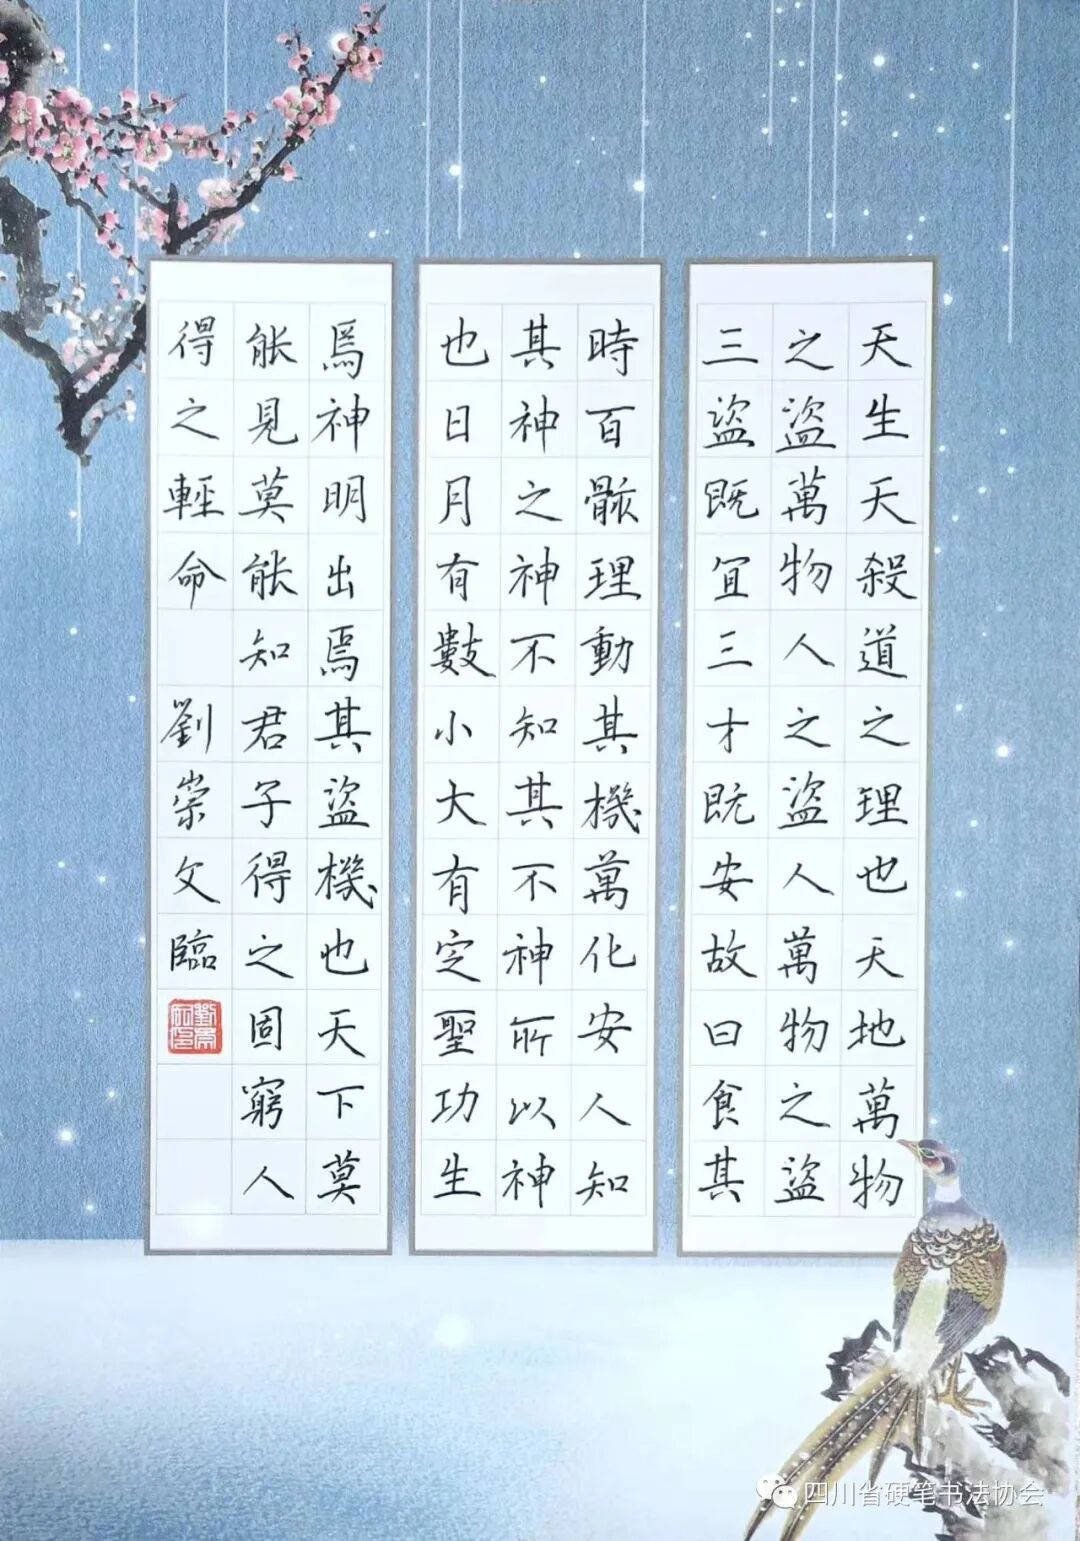 天生天殺道之理也天地萬物
之盜萬物人之盜人萬物之盜
三盜既宜三才既安故曰食其
時百骸理動其機萬化安人知
其神之神不知其不神所以神
也日月有數小大有定聖功生
焉神明出焉其盜機也天下莫
能見莫能知君子得之固窮人
得之輕命 劉崇文臨
四川省硬笔书法协会